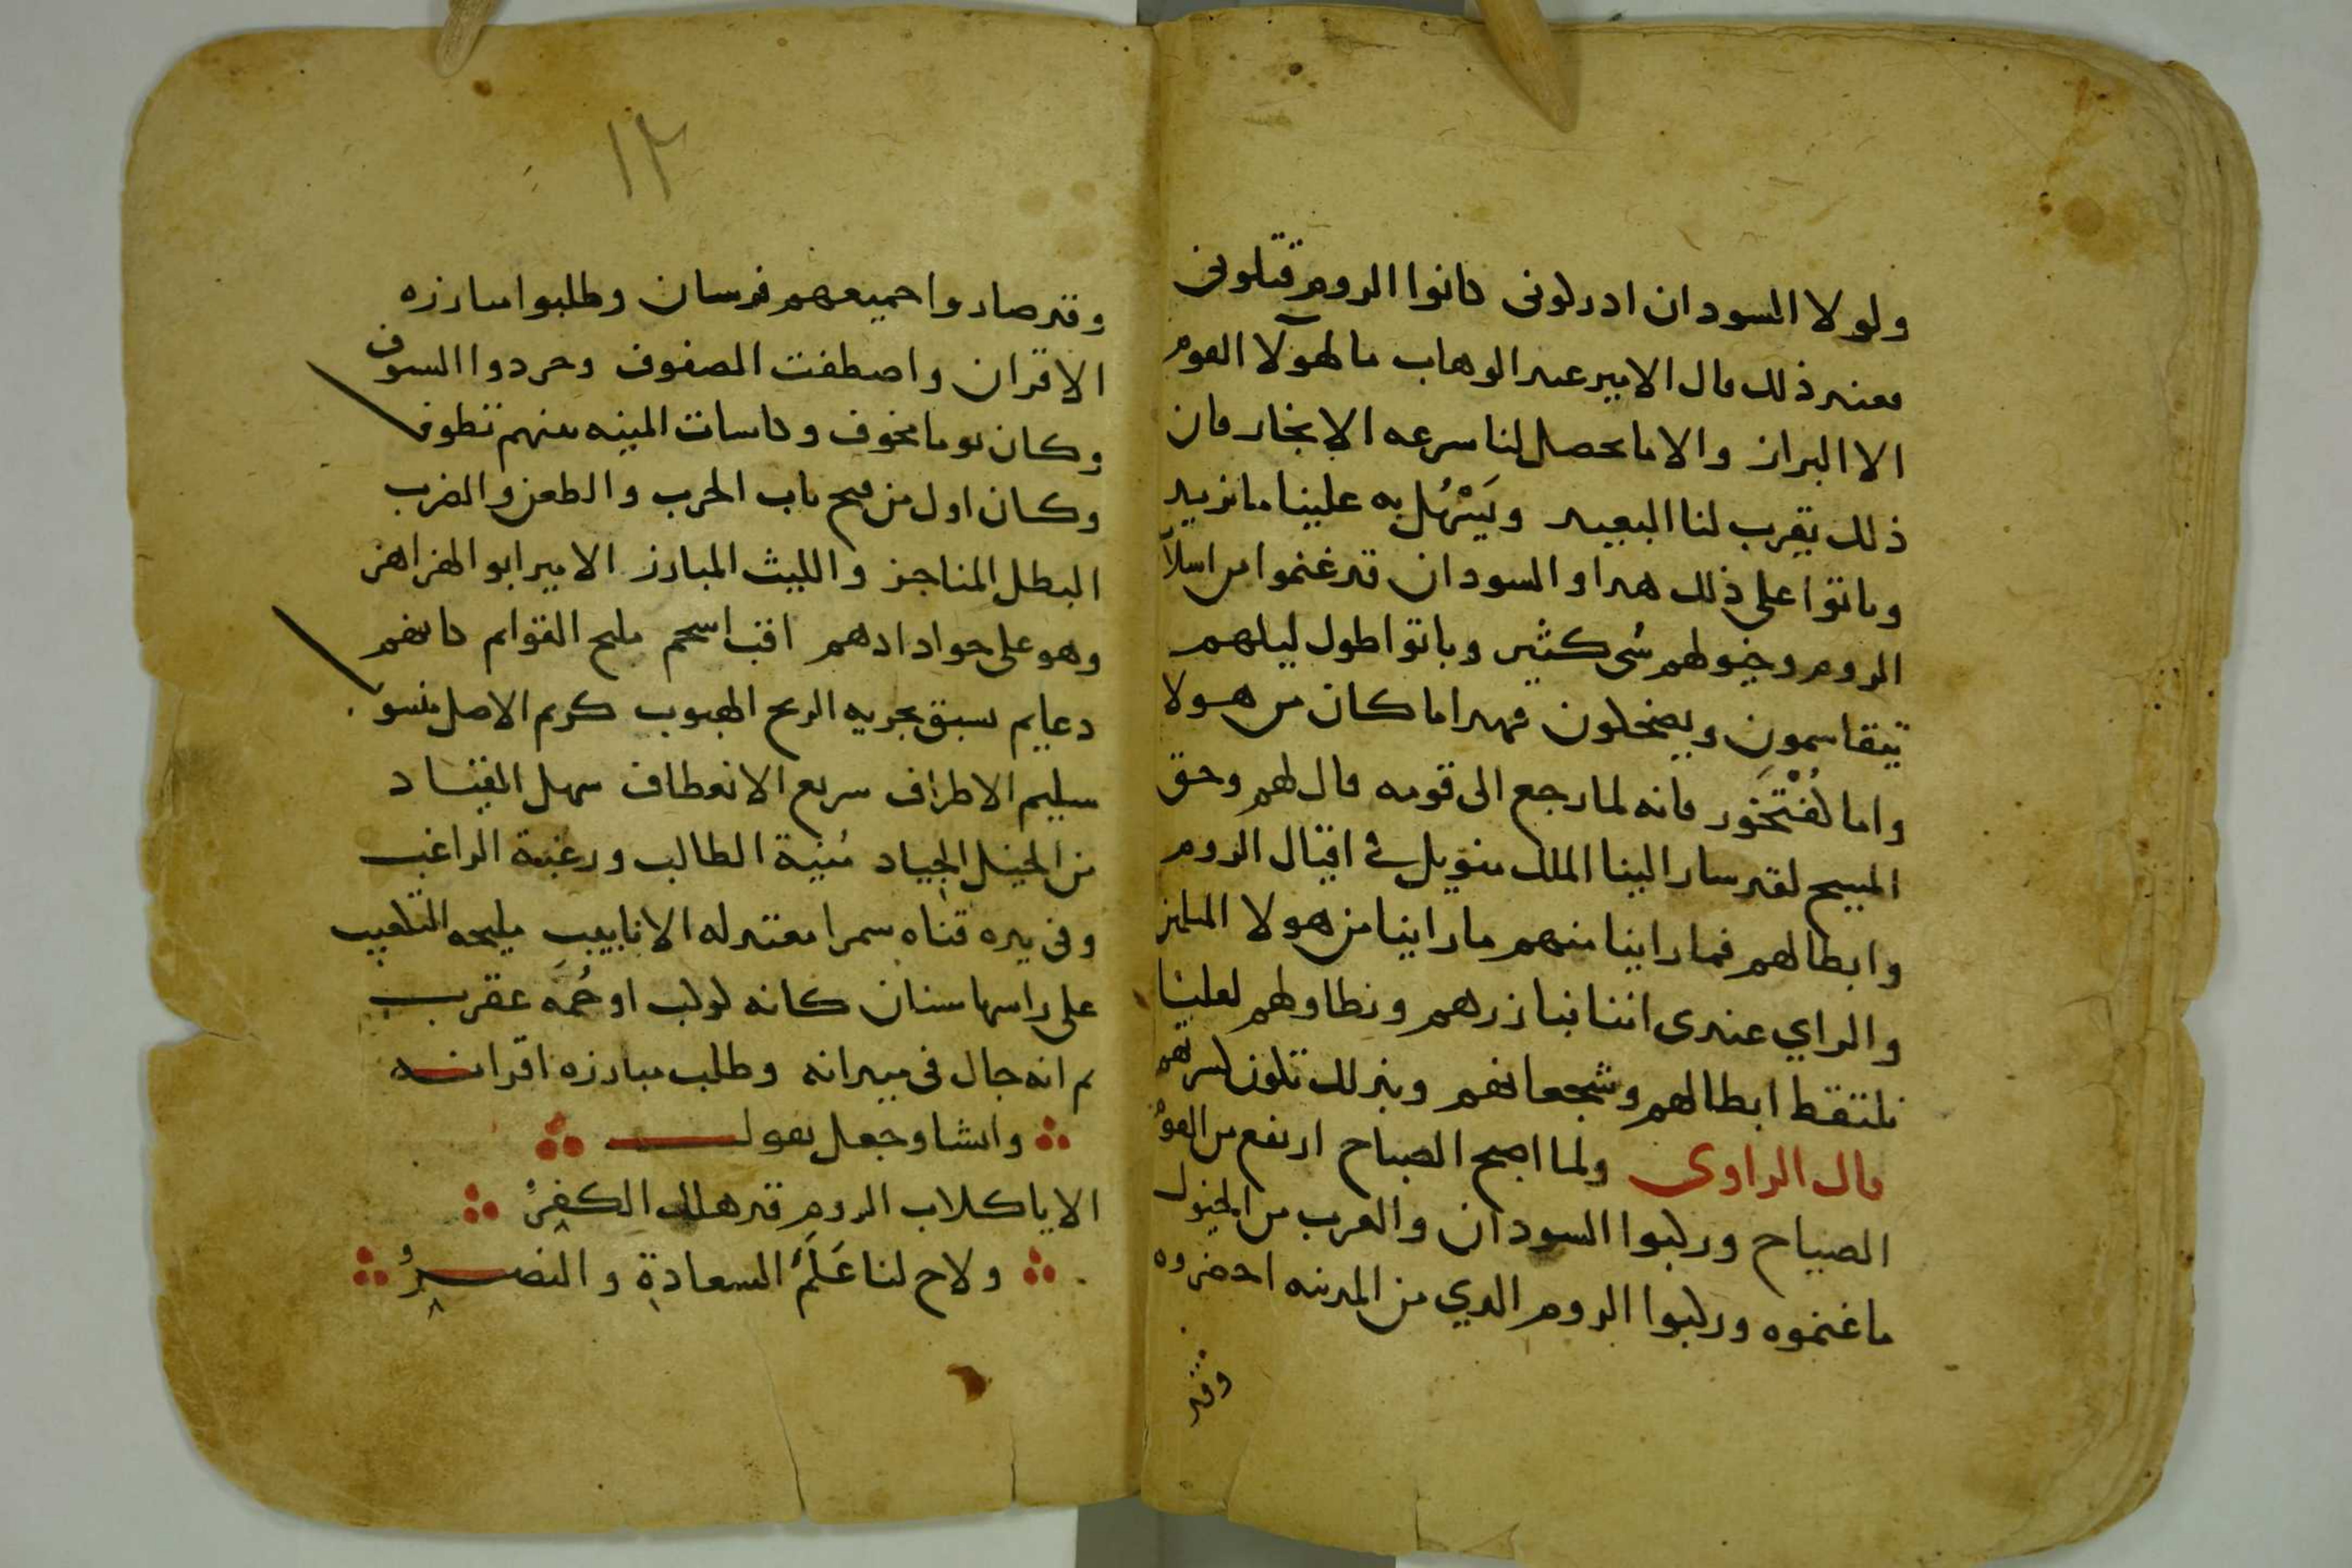 ولولا السودان ادركونى كانوا الروم قتلونى
فعند ذلك قال الامير عبد الوهاب ما لهولآ القوم
الا البراز والا ما يحصل لنا سرعه الا نجاز فان
ذلك يقرب لنا البعيد ويَسْهُل به علينا ما نريد
وباتوا على ذلك هدا والسودان قد غنموا من اسلاب
الروم وخيولهم شى كثير وباتوا طول ليلهم
يتقاسمون ويضحكون فهدا ما كان من هولا
واما فانه لما رجع الى قومه قال لهم وحق
المسيح لقد سار الينا الملك منويل فى اقيال الروم
وابطالهم فما راينا منهم ما راينا من هولا
والراي عندى اننا نبارزهم ونطاولهم لعلنا
نلتقط ابطالهم وشجعانهم وبذلك تكون كسرتهم
قال الراوى ولما اصبح الصباح ارتفع من القوم
الصياح وركبوا السودان والعرب من الخيول
ما غنموه وركبوا الروم الدي من المدينه احضروه
وقد
١٢
وقد صاروا جميعهم فرسان وطلبوا مبارزه
الاقران واصطفت الصفوف وجردوا السيوف
وكان يوما مخوف وكاسات المنيه بينهم تطوف
وكان اول من فتح باب الحرب والطعن والضرب
البطل المناجز والليث المبارز الامير ابو الهزاهز
وهو على جواد ادهم اقب اسحم مليح القوايم كانهم
دعايم يسبق بجريه الريح الهبوب كريم الاصل منسوب
سليم الاطراف سريع الانعطاف سهل القياد
من الخيل الجياد مُنية الطالب ورغبة الراغب
وفى يده قناه سمرا معتدله الانابيب مليحه التلعيب
على راسها سنان كانه لولب او حُمَه عقرب
ثم انه جال فى ميدانه وطلب مبارزه اقرانه
وانشا وجعل يقول
الا يا كلاب الروم قد هلك الكفرُ
ولاح لنا عَلَمُ السعادة والنصرُ